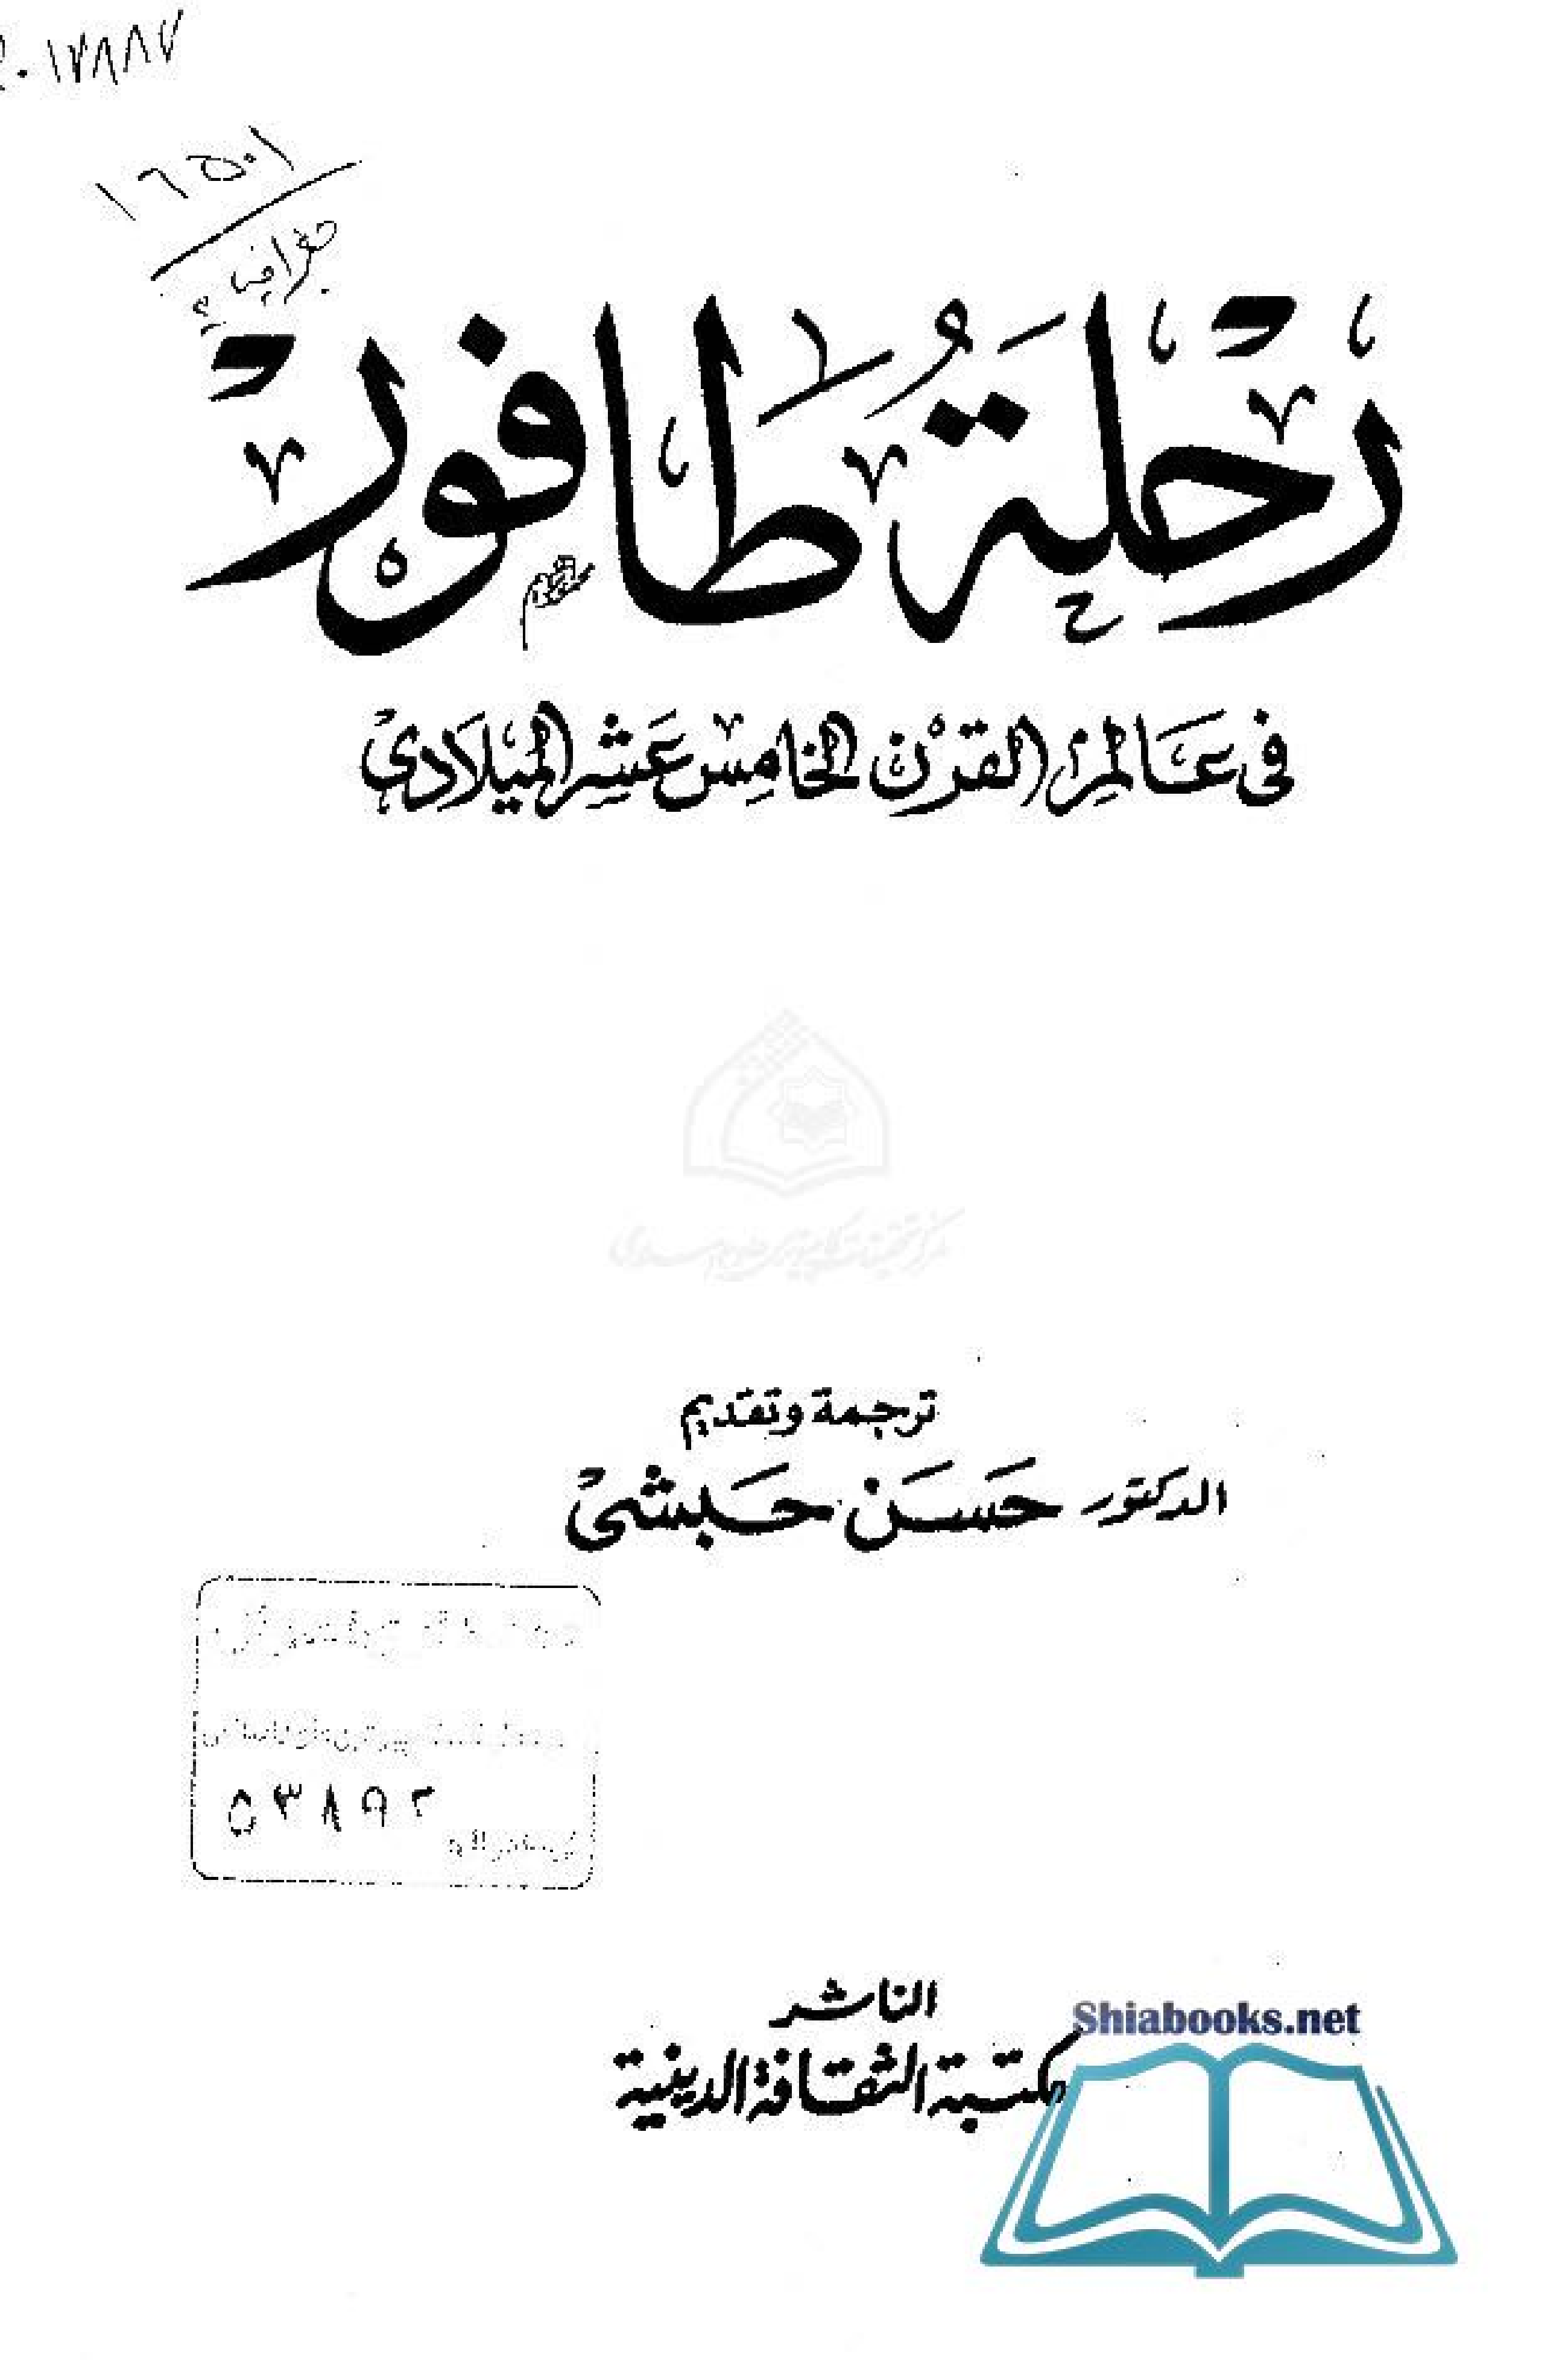 ١٦٥٠١
جغرافيا
رحلة طافور
فى عالم القرن الخامس عشر الميلادى
ترجمة وتقديم
الدكتور حسن حبشى
٥٣٨٩٢
الناشر
مكتبة الثقافة الدينية
Shiabooks.net